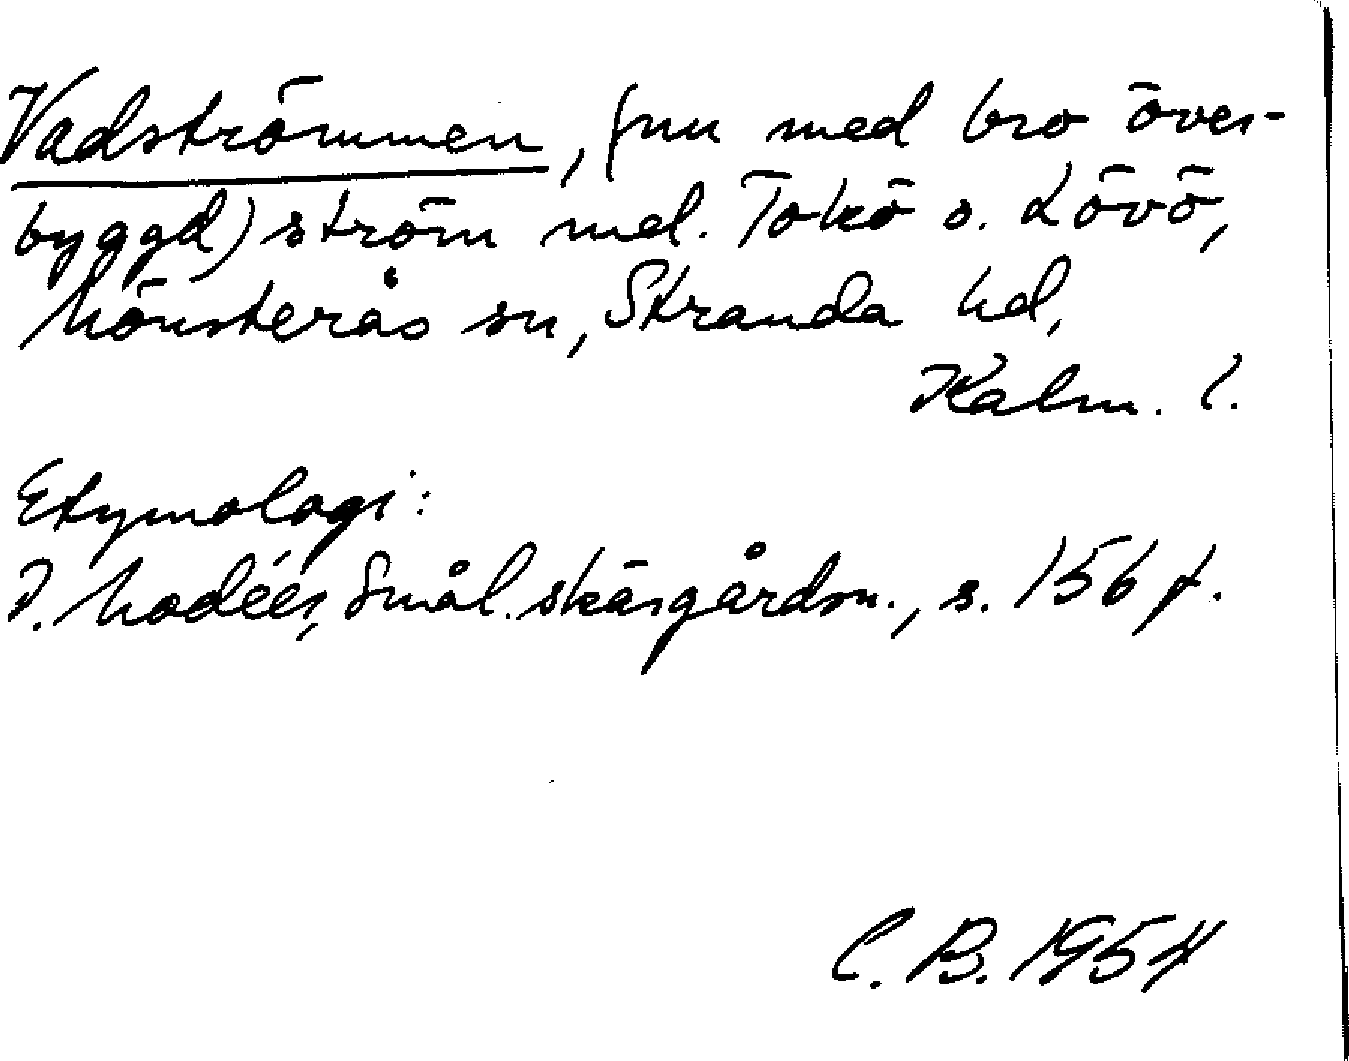 Vadströmmen, (nu med bro över-
byggd) ström mel. Tokö o. Lövö,
Mönsterås sn, Stranda hd,
Kalm. l.
Etymologi:
I. Modéer, Smål. skärgårdsn., s. 156 f.
C. B. 1954